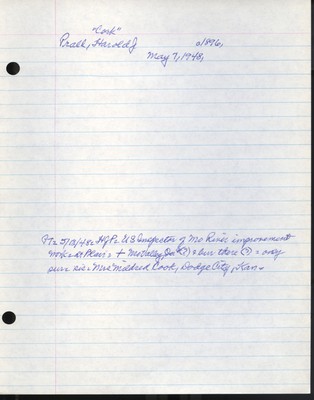 "Cork"
Pralt, Harold J o/896,
May 7, 1948,
Pt 2 5/13/48 HJP U S Inspector of Mo River improvement
work at + Mo Valley, (?) + bur there (?) = only
surv sis Mrs Mildred Cook, Dodge City, Kan.